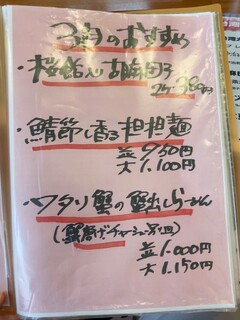 3月のおすすめ
・桜餡入胡麻団子
2ケ380円
・鯖節し香る担担麺
並950円
大1.100円
・ワタリ蟹の蟹出しらーめん
(蟹揚げチャーシュー別皿)
並1.000円
大1.150円